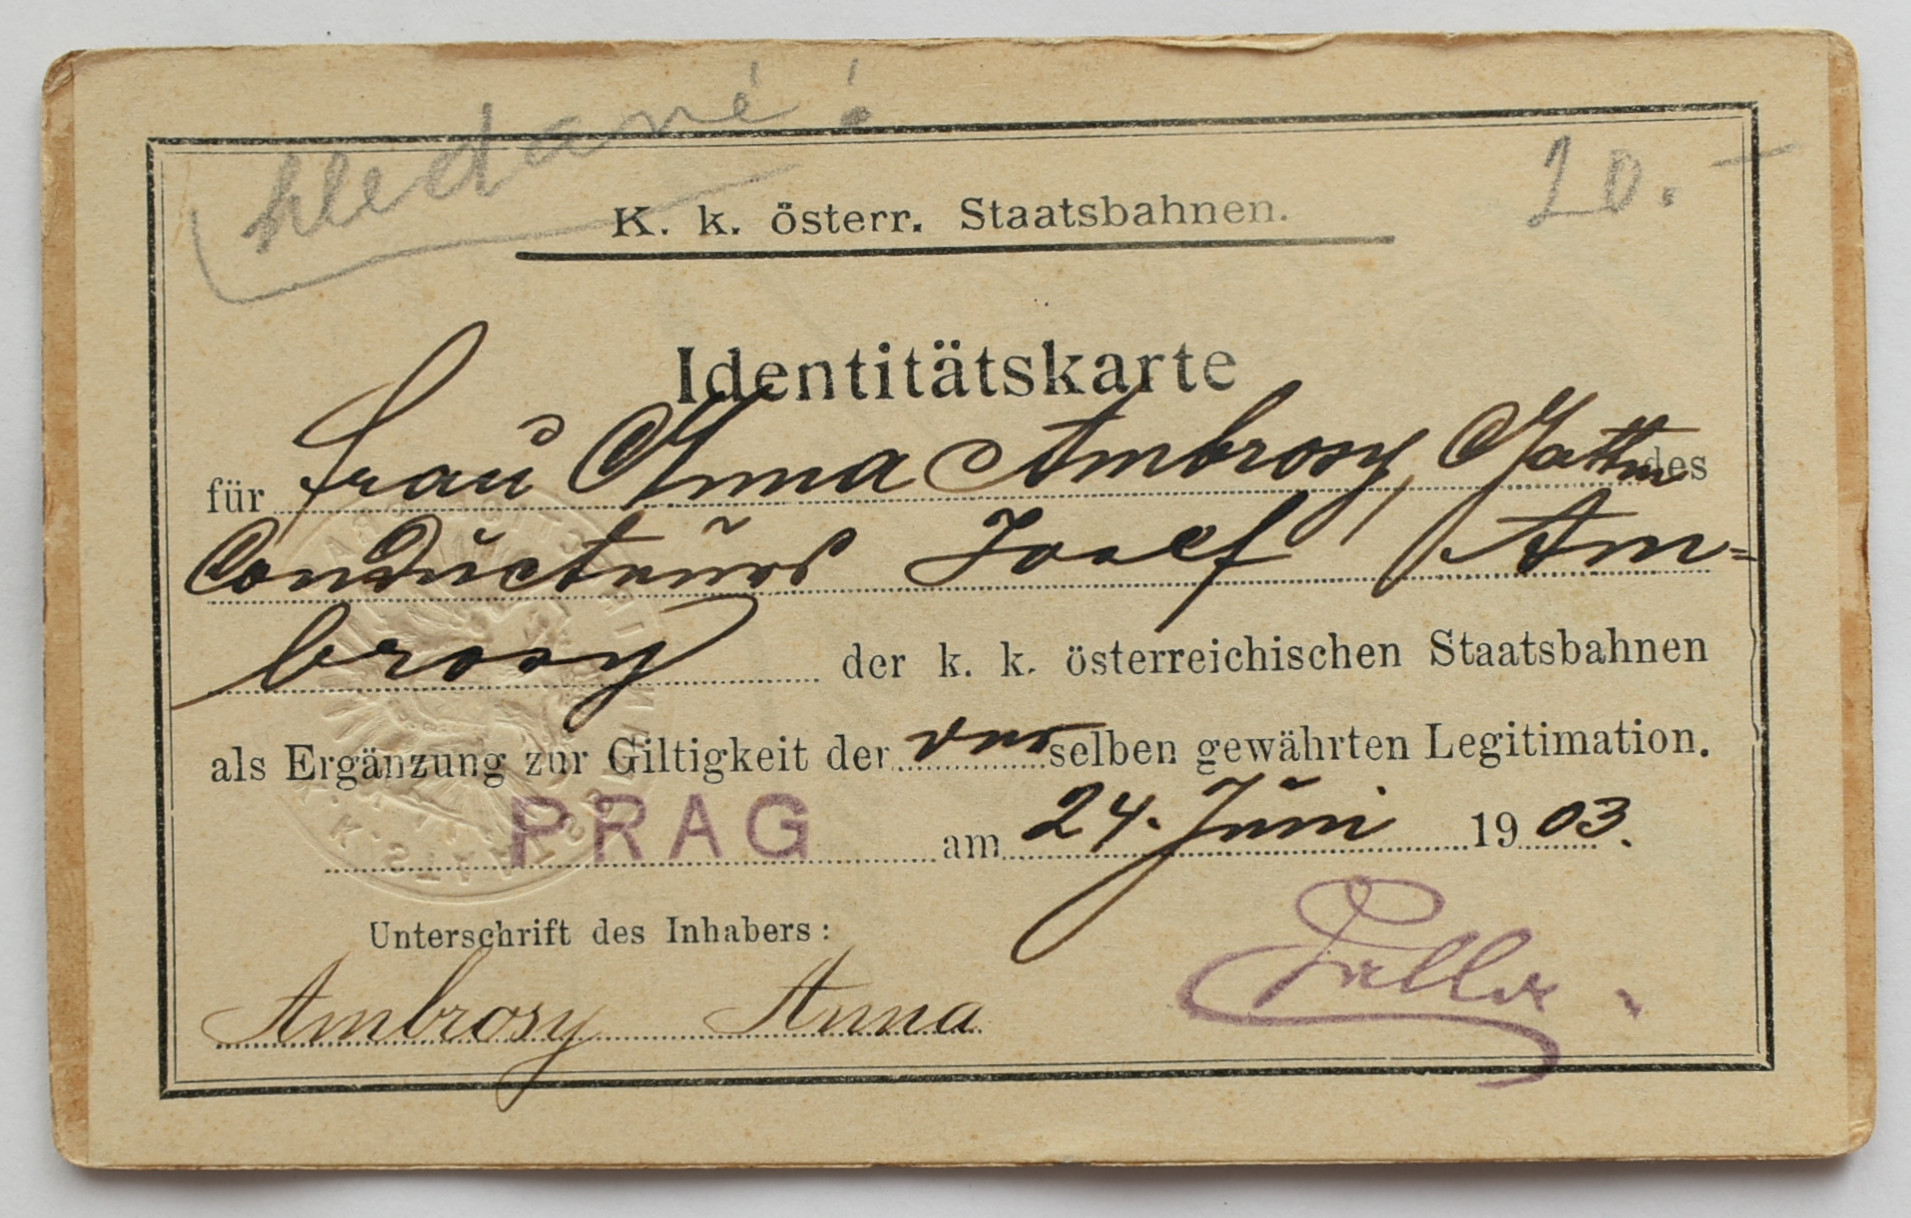 hledané!
20.-
K. k. österr. Staatsbahnen.
Identitätskarte
für Frau Anna Ambrosy, Gattin des
Conducteurs Josef Am=
brosy der k. k. österreichischen Staatsbahnen
als Ergänzung zur Giltigkeit der derselben gewährten Legitimation.
PRAG am 24. Juni 1903.
Unterschrift des Inhabers:
Ambrosy Anna